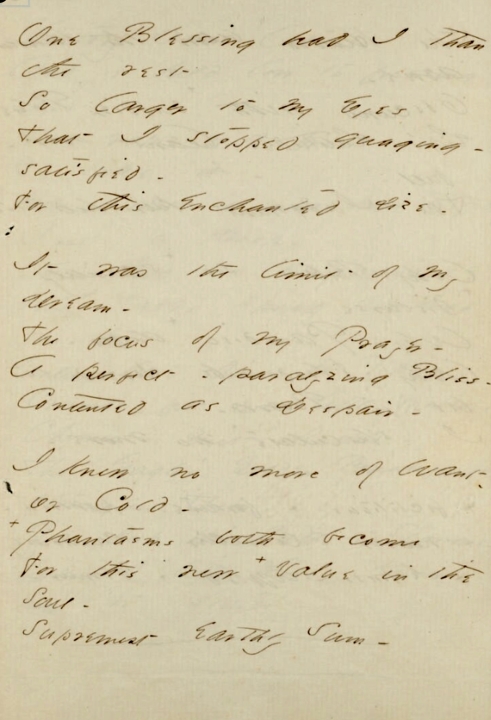 One Blessing had I than
the rest
So larger to my Eyes
That I stopped guaging -
satisfied -
For this enchanted size -
It was the limit of my
dream -
The focus of my Prayer -
A perfect - paralyzing Bliss -
Contented as Despair -
I knew no more of Want -
or Cold -
+ Phantasms both become
For this new + Value in the
Soul -
Supremest Earthly Sum -